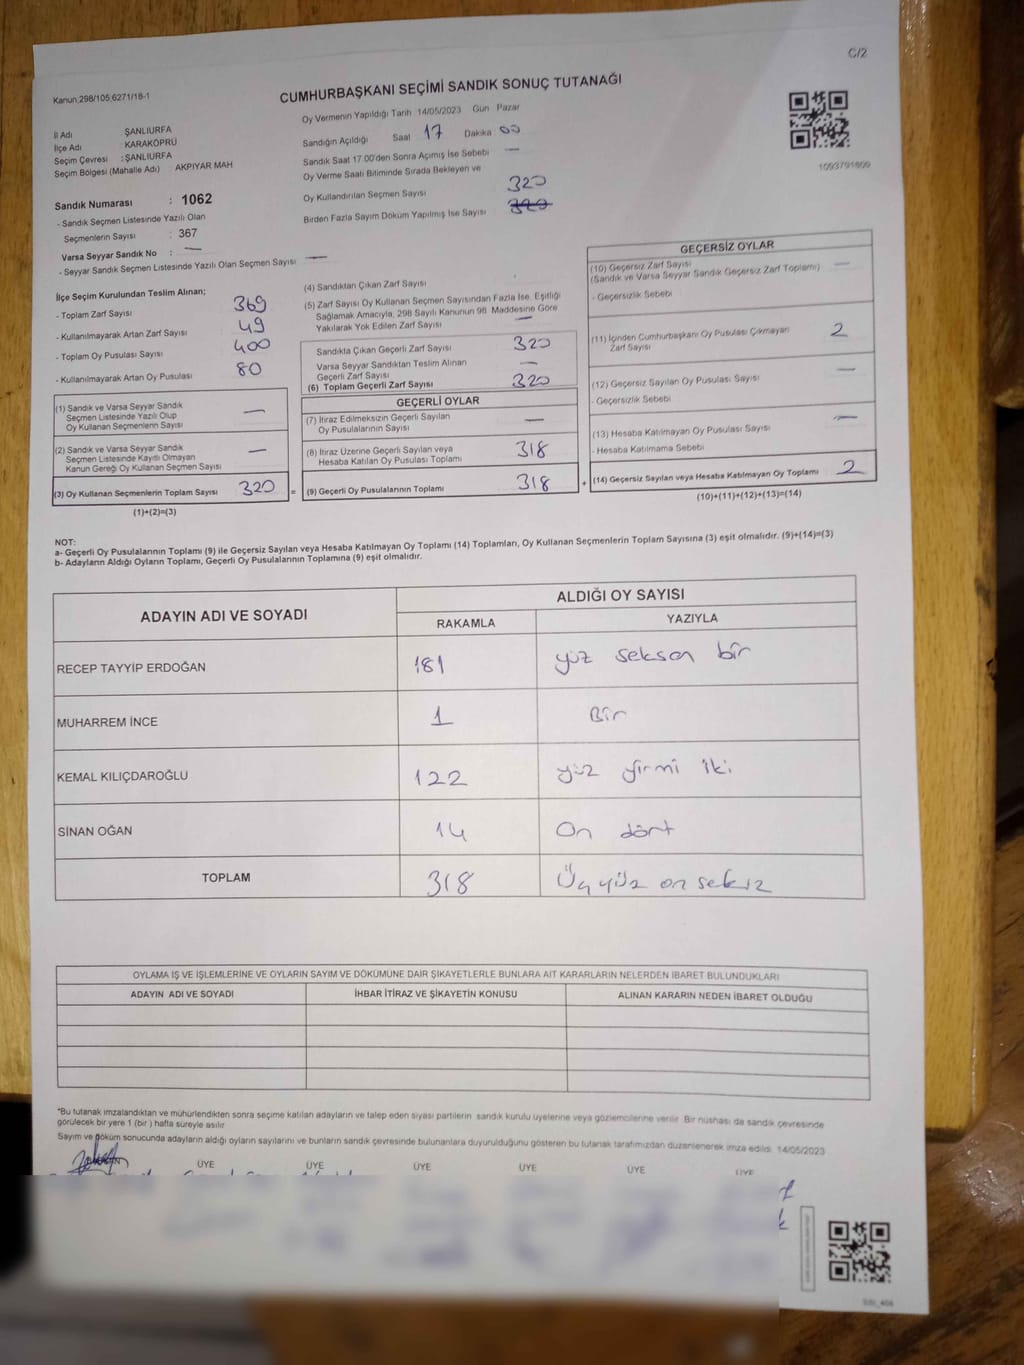 C/2
Kanun,298/105,6271/18-1
CUMHURBAŞKANI SEÇİMİ SANDIK SONUÇ TUTANAĞI
İl Adı ŞANLIURFA
İlçe Adı : KARAKÖPRÜ
Seçim Çevresi : ŞANLIURFA
Seçim Bölgesi (Mahalle Adı) AKPIYAR MAH
Sandık Numarası : 1062
- Sandık Seçmen Listesinde Yazılı Olan
Seçmenlerin Sayısı : 367
Varsa Seyyar Sandık No : —
- Seyyar Sandık Seçmen Listesinde Yazılı Olan Seçmen Sayısı —
Oy Vermenin Yapıldığı Tarih 14/05/2023 Gün Pazar
Sandığın Açıldığı Saat 17 Dakika 00
Sandık Saat 17.00'den Sonra Açımış İse Sebebi —
Oy Verme Saati Bitiminde Sırada Bekleyen ve
Oy Kullandırılan Seçmen Sayısı 320
Birden Fazla Sayım Döküm Yapılmış İse Sayısı 320
1093791809
İlçe Seçim Kurulundan Teslim Alınan;
- Toplam Zarf Sayısı 369
- Kullanılmayarak Artan Zarf Sayısı 49
- Toplam Oy Pusulası Sayısı 400
- Kullanılmayarak Artan Oy Pusulası 80
(1) Sandık ve Varsa Seyyar Sandık
Seçmen Listesinde Yazılı Olup
Oy Kullanan Seçmenlerin Sayısı —
(2) Sandık ve Varsa Seyyar Sandık
Seçmen Listesinde Kayıtlı Olmayan
Kanun Gereği Oy Kullanan Seçmen Sayısı —
(3) Oy Kullanan Seçmenlerin Toplam Sayısı 320 =
(1)+(2)=(3)
(4) Sandıktan Çıkan Zarf Sayısı
(5) Zarf Sayısı Oy Kullanan Seçmen Sayısından Fazla İse, Eşitliği
Sağlamak Amacıyla, 298 Sayılı Kanunun 98. Maddesine Göre
Yakılarak Yok Edilen Zarf Sayısı —
Sandıkta Çıkan Geçerli Zarf Sayısı 320
Varsa Seyyar Sandıktan Teslim Alınan
Geçerli Zarf Sayısı —
(6) Toplam Geçerli Zarf Sayısı 320
GEÇERLİ OYLAR
(7) İtiraz Edilmeksizin Geçerli Sayılan
Oy Pusulalarının Sayısı —
(8) İtiraz Üzerine Geçerli Sayılan veya
Hesaba Katılan Oy Pusulası Toplamı 318
(9) Geçerli Oy Pusulalarının Toplamı 318 +
GEÇERSİZ OYLAR
(10) Geçersiz Zarf Sayısı —
(Sandık ve Varsa Seyyar Sandık Geçersiz Zarf Toplamı)
- Geçersizlik Sebebi
(11) İçinden Cumhurbaşkanı Oy Pusulası Çıkmayan 2
Zarf Sayısı
(12) Geçersiz Sayılan Oy Pusulası Sayısı —
- Geçersizlik Sebebi
(13) Hesaba Katılmayan Oy Pusulası Sayısı —
- Hesaba Katılmama Sebebi
(14) Geçersiz Sayılan veya Hesaba Katılmayan Oy Toplamı 2
(10)+(11)+(12)+(13)=(14)
NOT:
a- Geçerli Oy Pusulalarının Toplamı (9) ile Geçersiz Sayılan veya Hesaba Katılmayan Oy Toplamı (14) Toplamları, Oy Kullanan Seçmenlerin Toplam Sayısına (3) eşit olmalıdır. (9)+(14)=(3)
b- Adayların Aldığı Oyların Toplamı, Geçerli Oy Pusulalarının Toplamına (9) eşit olmalıdır.
ADAYIN ADI VE SOYADI ALDIĞI OY SAYISI
RAKAMLA YAZIYLA
RECEP TAYYİP ERDOĞAN 181 yüz seksen bir
MUHARREM İNCE 1 Bir
KEMAL KILIÇDAROĞLU 122 yüz yirmi iki
SİNAN OĞAN 14 On dört
TOPLAM 318 Üç yüz on sekiz
OYLAMA İŞ VE İŞLEMLERİNE VE OYLARIN SAYIM VE DÖKÜMÜNE DAİR ŞİKAYETLERLE BUNLARA AİT KARARLARIN NELERDEN İBARET BULUNDUKLARI
ADAYIN ADI VE SOYADI İHBAR İTİRAZ VE ŞİKAYETİN KONUSU ALINAN KARARIN NEDEN İBARET OLDUĞU
*Bu tutanak imzalandıktan ve mühürlendikten sonra seçime katılan adayların ve talep eden siyasi partilerin sandık kurulu üyelerine veya gözlemcilerine verilir. Bir nüshası da sandık çevresinde
görülecek bir yere 1 (bir) hafta süreyle asılır
Sayım ve döküm sonucunda adayların aldığı oyların sayılarını ve bunların sandık çevresinde bulunanlara duyurulduğunu gösteren bu tutanak tarafımızdan düzenlenerek imza edildi. 14/05/2023
ÜYE ÜYE ÜYE ÜYE ÜYE ÜYE